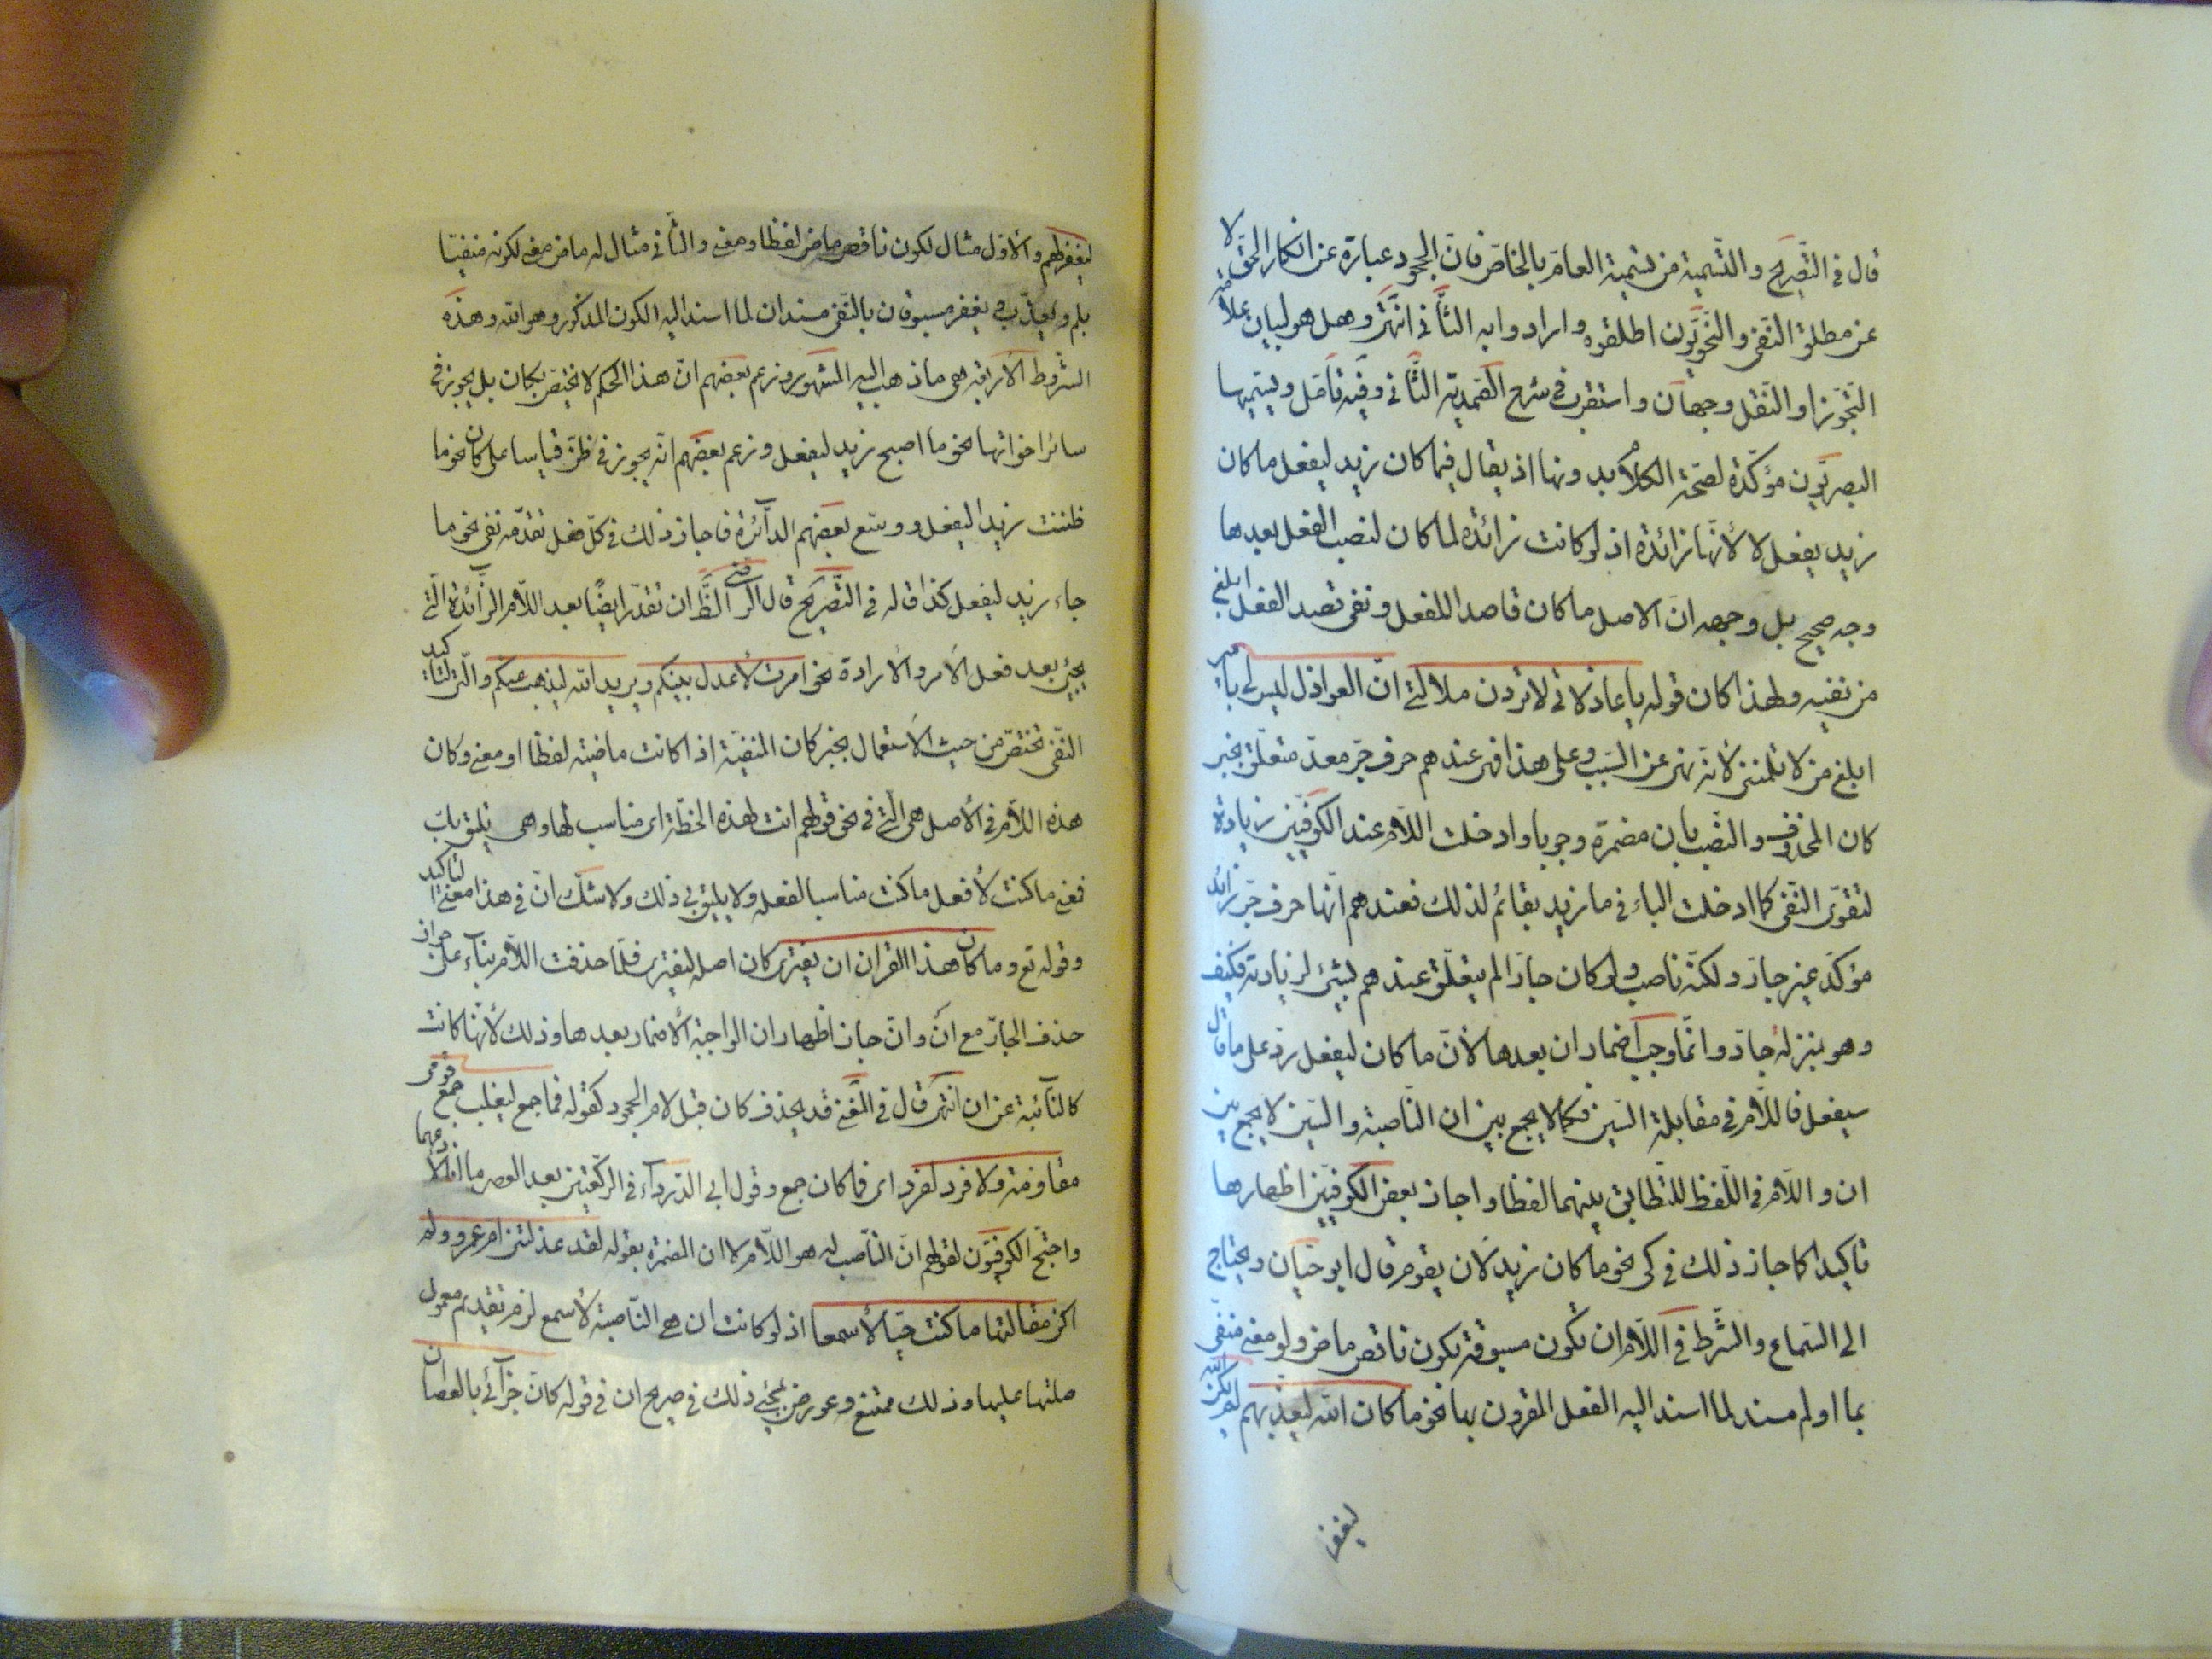 قال في التّصريح والتّسمية من تسمية العامّ بالخاصّ فانّ الجحود عبارة عن انكار الحقّ لا
عن مطلق النّفى والنّحويّون اطلقوه وارادوا به الثّانى انتهى وهل هو لبيان علاقة
التّجوّز او النّقل وجهان واستقرب في شرح الصّمديّة الثّانى وفيه تامّل ويسمّيها
البصريّون مؤكّدة لصحّة الكلام بدونها اذ يقال في ما كان زيد ليفعل ما كان
زيد يفعل لا لأنّها زائدة اذ لو كانت زائدة لما كان لنصب الفعل بعدها
وجه صحيح بل وجهه انّ الاصل ما كان قاصدا للفعل ونفى قصد الفعل ابلغ
من نفيه ولهذا كان قوله يا عاذلاتى لا تردن ملامتى انّ العواذل ليس لى بامير
ابلغ من لا تلمننى لأنّه نهى عن السّبب وعلى هذا فهى عندهم حرف جرّ معدّ متعلّق بخبر
كان المحذوف والنّصب بان مضمرة وجوبا وادخلت اللّام عند الكوفيّين زيادة
لتقوّى النّفى كما ادخلت الباء في ما زيد بقائم لذلك فعندهم انّها حرف جرّ زائد
مؤكّد غير جارّ ولكنّه ناصب ولو كان جارّا لم يتعلّق عندهم بشئ لزيادته فكيف
وهو بمنزلة جارّ وانّما وجب اضمار ان بعدها لأنّ ما كان ليفعل ردّ على من قال
سيفعل فاللّام في مقابلة السّين فكما لا يجمع بين ان النّاصبة والسّين لا يجمع بين
ان واللّام في اللّفظ للتّطابق بينهما لفظا واجاز بعض الكوفيّين اظهارها
تاكيدا كما جاز ذلك في كى نحو ما كان زيد لان يقوم قال ابو حيّان ويحتاج
الى السّماع والشّرط في اللّام ان تكون مسبوقة بكون ناقص ماض ولو معنى منفى
بما او لم مسند لما اسند اليه الفعل المقرون بها نحو ما كان اللّه ليعذّبهم لم يكن اللّه
ليغفر
ليغفر لهم والأوّل مثال لكون ناقص ماض لفظا ومعنى والثّانى مثال له ماض معنى لكونه منفيّا
بلم ويعذّب ويغفر مسبوقان بالنّفى مسندان لما اسند اليه الكون المذكور وهو اللّه وهذه
الشّروط الأربعة هى ما ذهب اليه المشهور وزعم بعضهم انّ هذا الحكم لا يختصّ بكان بل يجوز في
سائر اخواتها نحو ما اصبح زيد ليفعل وزعم بعضهم انّه يجوز في ظنّ قياسا على كان نحو ما
ظننت زيدا ليفعل ووسّع بعضهم الدّائرة فاجاز ذلك في كلّ فعل تقدّمه نفى نحو ما
جاء زيد ليفعل كذا قاله في التّصريح قال الرّضى الظّ ان تقدّر ايضًا بعد اللّام الزّائدة الّتى
يجئ بعد فعل الأمر والأرادة نحو امرت لأعدل بينكم ويريد اللّه ليذهب عنكم والّتى لتاكيد
النّفى تختصّ من حيث الأستعمال بخبر كان المنفيّة اذا كانت ماضية لفظا او معنى وكان
هذه اللّام في الأصل هى الّتى في نحو قولهم انت لهذه الخطّة اى مناسب لها وهى تليق بك
فمعنى ما كنت لأفعل ما كنت مناسبا لفعله ولا يليق بى ذلك ولا شكّ انّ في هذا معنى التاكيد
وقوله تع وما كان هذا القران ان يفترى كان اصله ليفترى فلمّا حذفت اللّام بناء على جواز
حذف الجارّ مع انّ وان جاز اظهار ان الواجبة الأضمار بعدها وذلك لأنّها كانت
كالنّائبة عن ان انتهى قال في المغنى قد يحذف كان قبل لام الجحود كقوله فما جمع ليغلب جمع قومى
مقاومة ولا فرد لفرد اى فما كان جمع وقول ابى الدّرداء في الرّكعتين بعد العصر ما انا لأدعهما
واحتجّ الكوفيّون لقولهم انّ النّاصب له هو اللّام لا ان المضمرة بقوله لقد عذلتنى امّ عمرو ولم
اكن مقالتها ما كنت حيّا لأسمعا اذ لو كانت ان هى النّاصبة لأسمع لزم تقديم معمول
صلتها عليها وذلك ممتنع وعورض بمجئ ذلك في صريح ان في قوله كان جزائى بالعصا ان